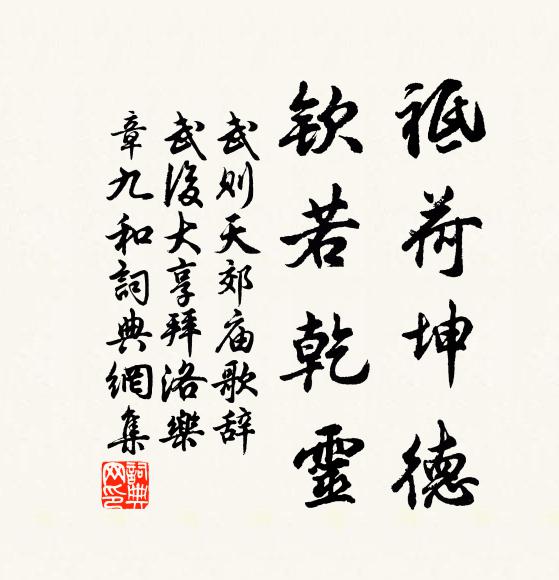 祗荷坤德
欽若乾靈
武則天郊庙歌辞
武後大享拜洛樂
章九和詞典網集
詞典网印